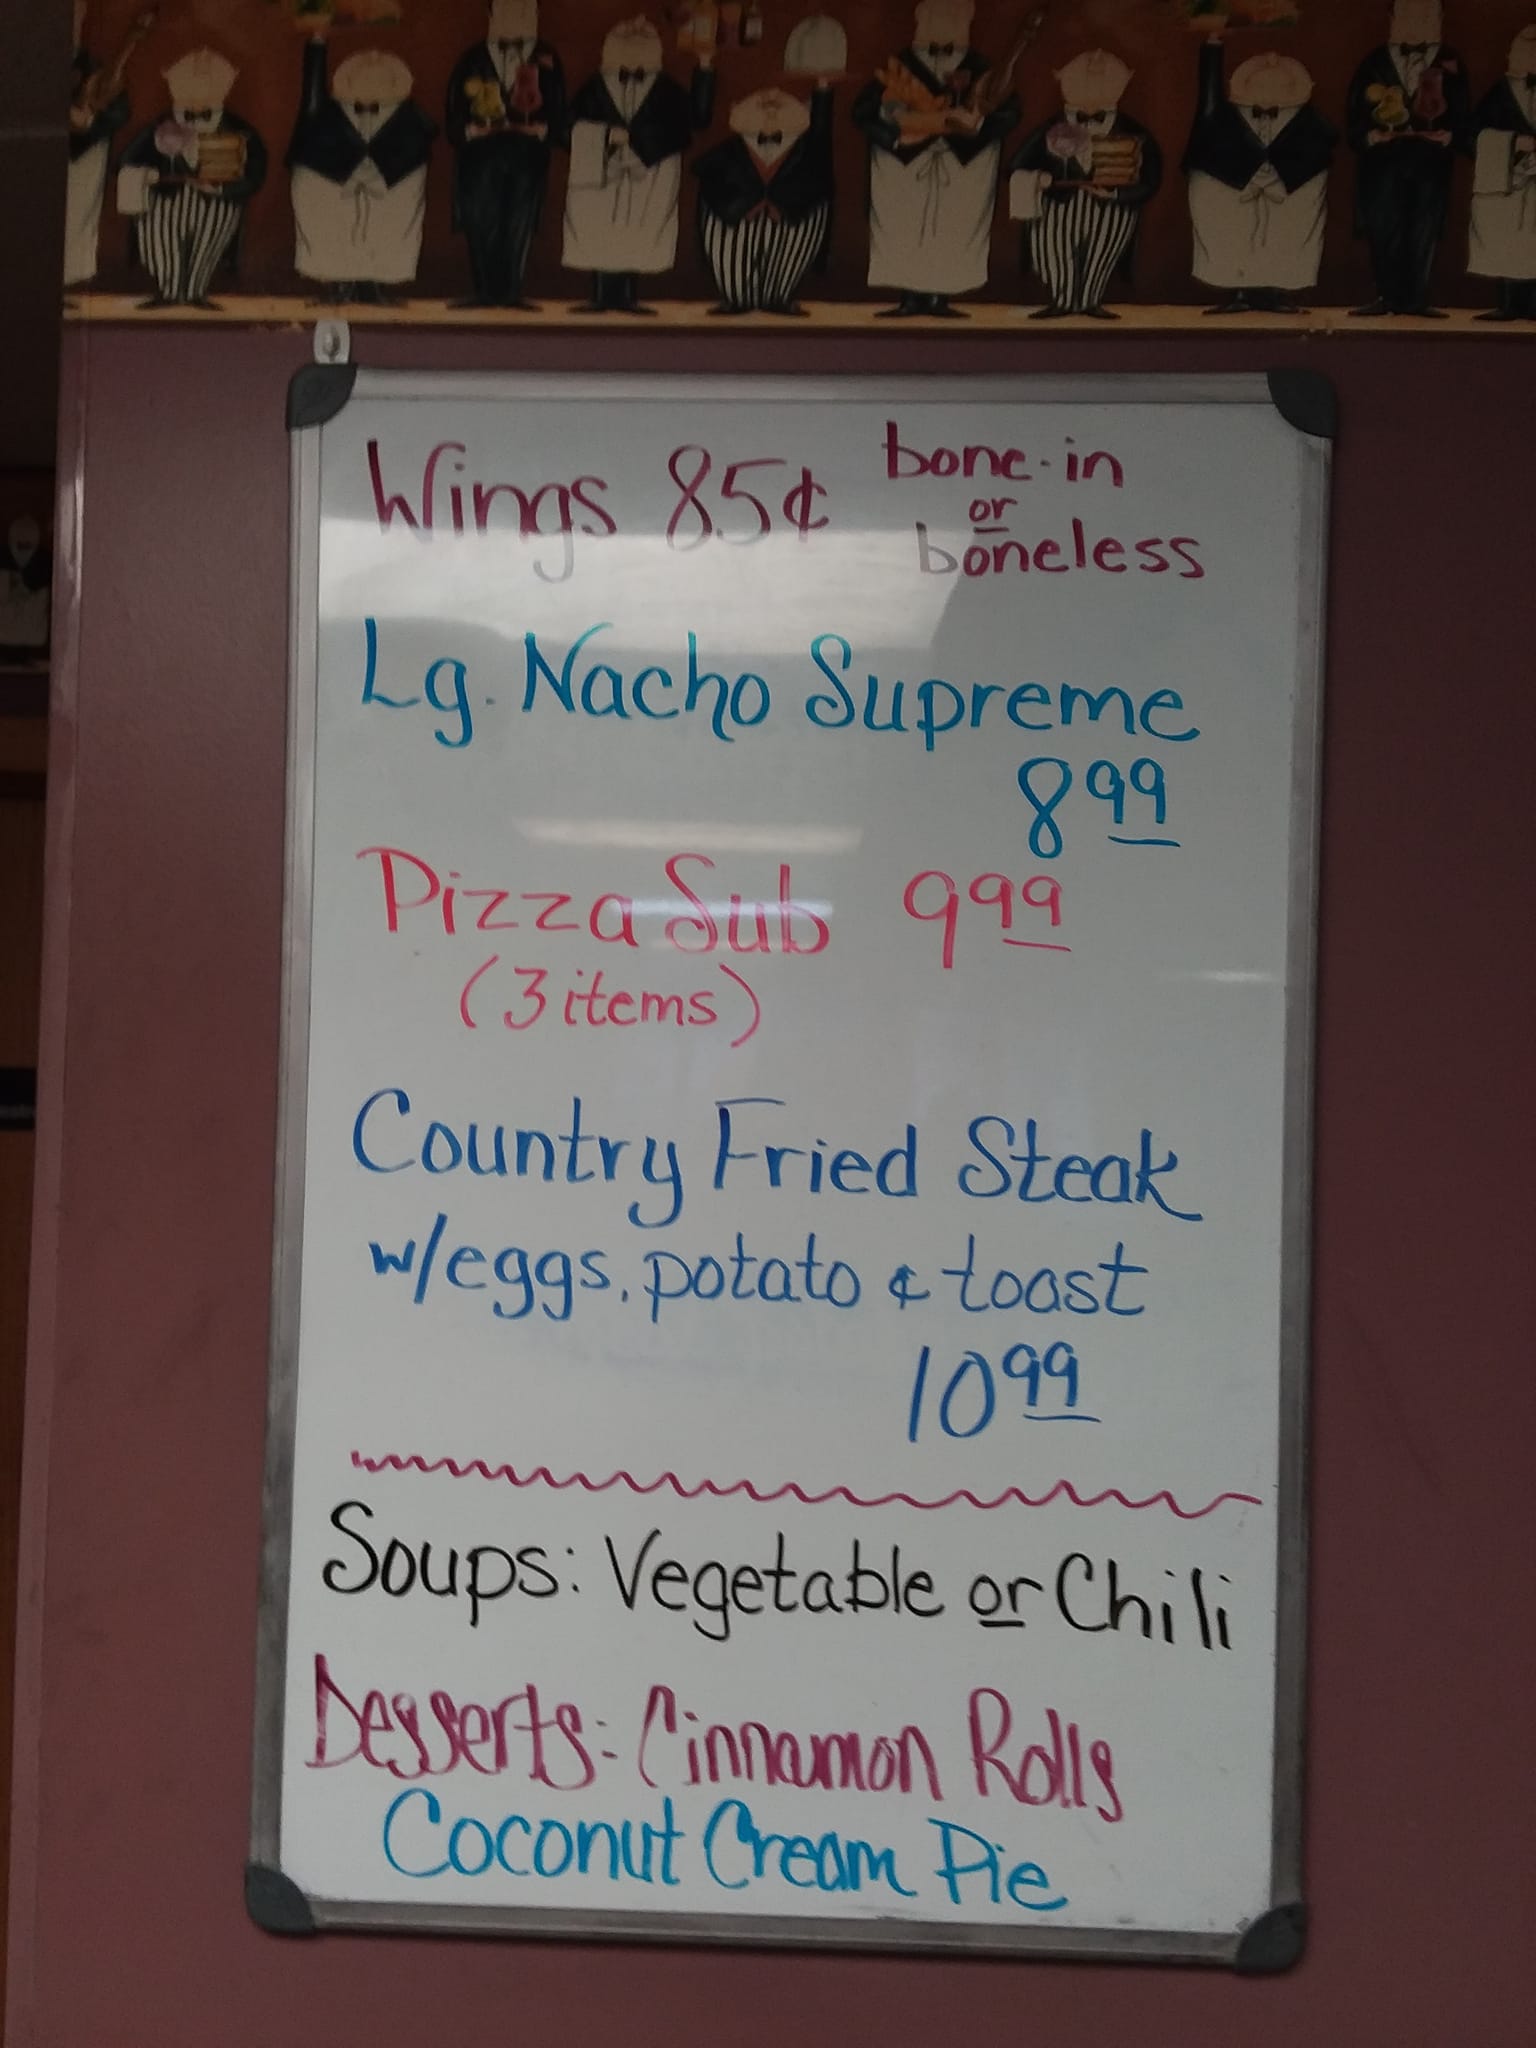 Wings 85¢ bone-in
or
boneless
Lg. Nacho Supreme
8 99
Pizza Sub 9 99
(3 items)
Country Fried Steak
w/eggs, potato & toast
10 99
Soups: Vegetable or Chili
Desserts: Cinnamon Rolls
Coconut Cream Pie